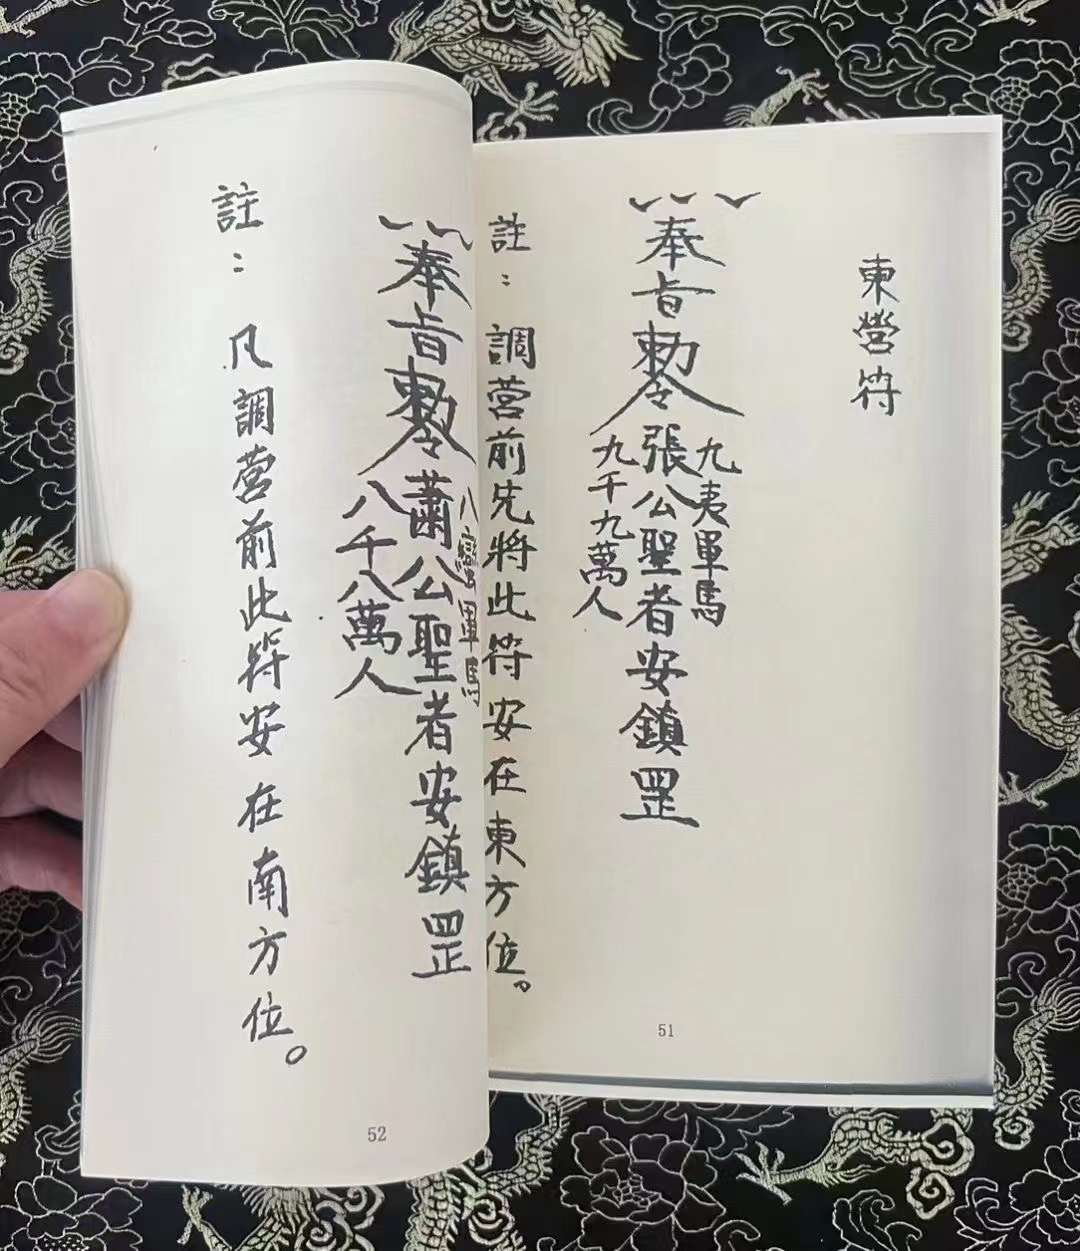 東營符
九夷軍馬
奉旨勅令張公聖者安鎮罡
九千九萬人
註：調營前先將此符安在東方位。
51
八蠻軍馬
奉旨勅令蕭公聖者安鎮罡
八千八萬人
註：凡調營前此符安在南方位。
52